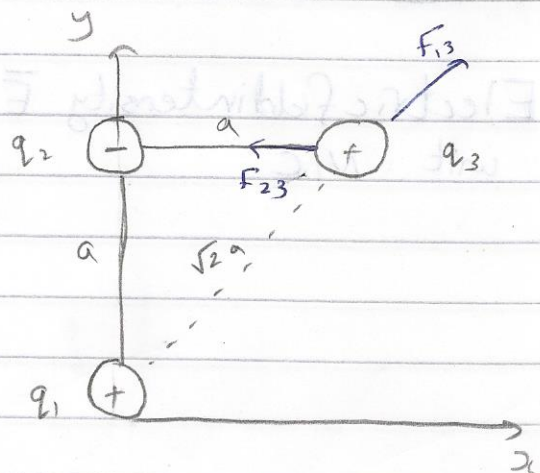 y
F₁₃
q₂ - a + q₃
F₂₃
a √2 a
q₁ +
x